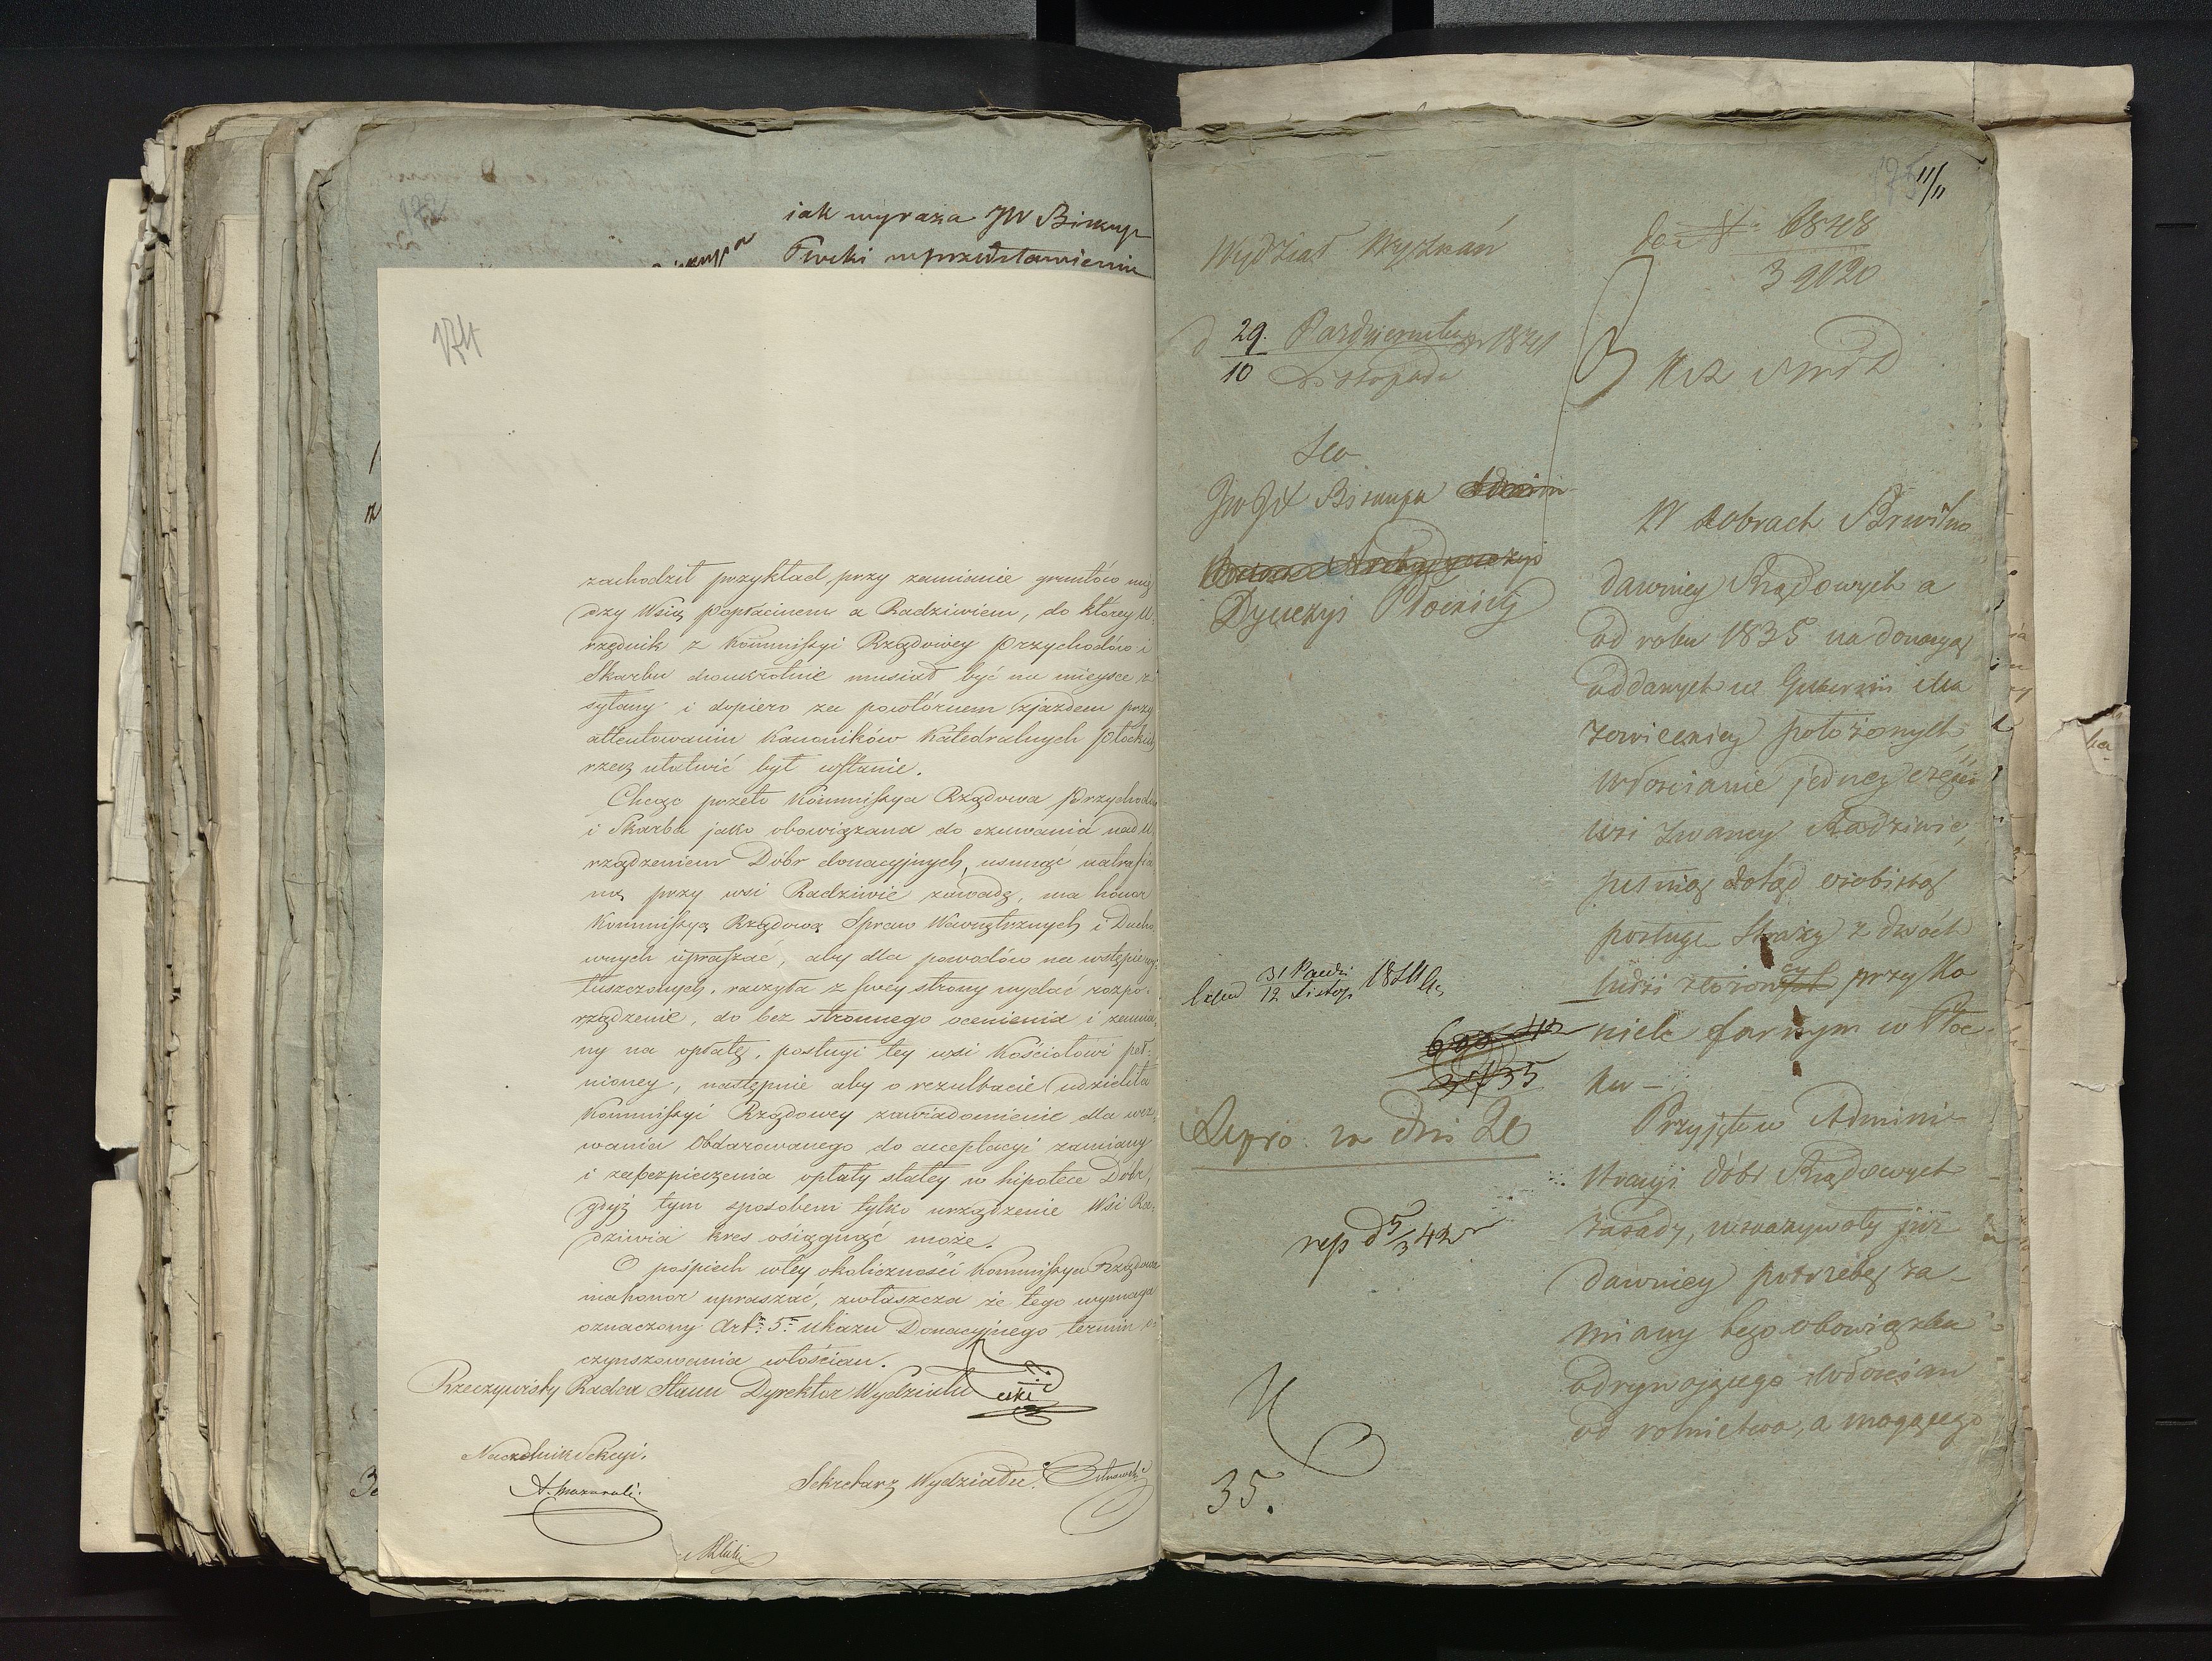 iak wyraża JW Biskup
174
zachodził przykład przy zamianie gruntów mię
dzy Wsią Popłacinem a Radziwiem, do którey U
rzędnik z Kommissyi Rządowey Przychodów i
Skarbu dwukrotnie musiał być na mieysce
syłany i dopiero za powtórnem zjazdem przy
attentowaniu Kanoników Katedralnych Płockich
rzecz ułatwić był wstanie.
Chcąc przeto Kommissya Rządowa Przychodów
i Skarbu jako obowiązana do czuwania nad U
rządzeniem Dóbr donacyjnych, usunąć natrafio
ną przy wsi Radziwie zawadę, ma honor
Kommissyą Rządową Spraw Wewnętrznych i Ducho
wnych upraszać, aby dla powodów na wstępie wy
łuszczonych, raczyła z swey strony wydać rozpo-
rządzenie, do bez stronnego ocenienia i zamia
ny na opłatę, posługi tey wsi Kościołowi peł-
nioney, następnie aby o rezultacie udzieliła
Kommissyi Rządowey zawiadomienie dla wez
wania Obdarowanego do acceptacyi zamiany
i zabezpieczenia opłaty stałey w hipotece Dóbr,
gdyż tym sposobem tylko urządzenie Wsi Ra-
dziwia kres osiągnąć może.
O pośpiech wtey okoliczności Kommissya Rządowa
ma honor upraszać, zwłaszcza że tego wymaga
oznaczony Artm 5m Ukazu Donacyjnego termin
czynszowania włościan.
Rzeczywisty Radca Stanu Dyrektor Wydziału
Naczelnik Sekcyi.
Sekretarz Wydziału
175
11/11
Wydział Wyznań
do N 6848
39020
d 29. Października 1841
10 Listopada
Do
JW JX Biskupa
Dyecezyi Płockiey
W dobrach Brwilno
dawniey Rządowych a
od roku 1835 na donacyą
oddanych w Gubernii Ma
zowieckiey położonych,
Włościanie jedney części
wsi zwaney Radziwie,
pełnią dotąd osobistą
posługę Straży z dwóch
ludzi złożoney przy Ko
31 Paźdz
12 Listop 1841
ściele farnym w Płoc
ku –
3735
Repro. za dni 20
Przyjęte w Admini
stracyi dóbr Rządowych
zasady, wskazywały już
rep d 5/3 42 r
dawniey potrzebę za-
miany tego obowiązku
odrywającego Włościan
od rolnictwa, a mogącego
35.